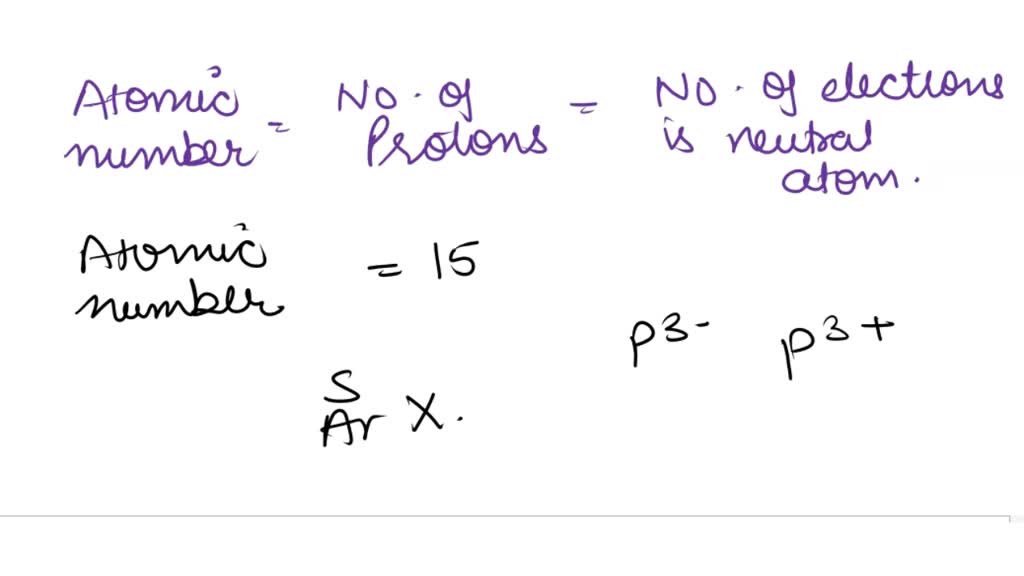 Atomic number = No. of Protons = No. of elections is neutral atom.
Atomic number = 15
p3- p3+
S
Ar X.